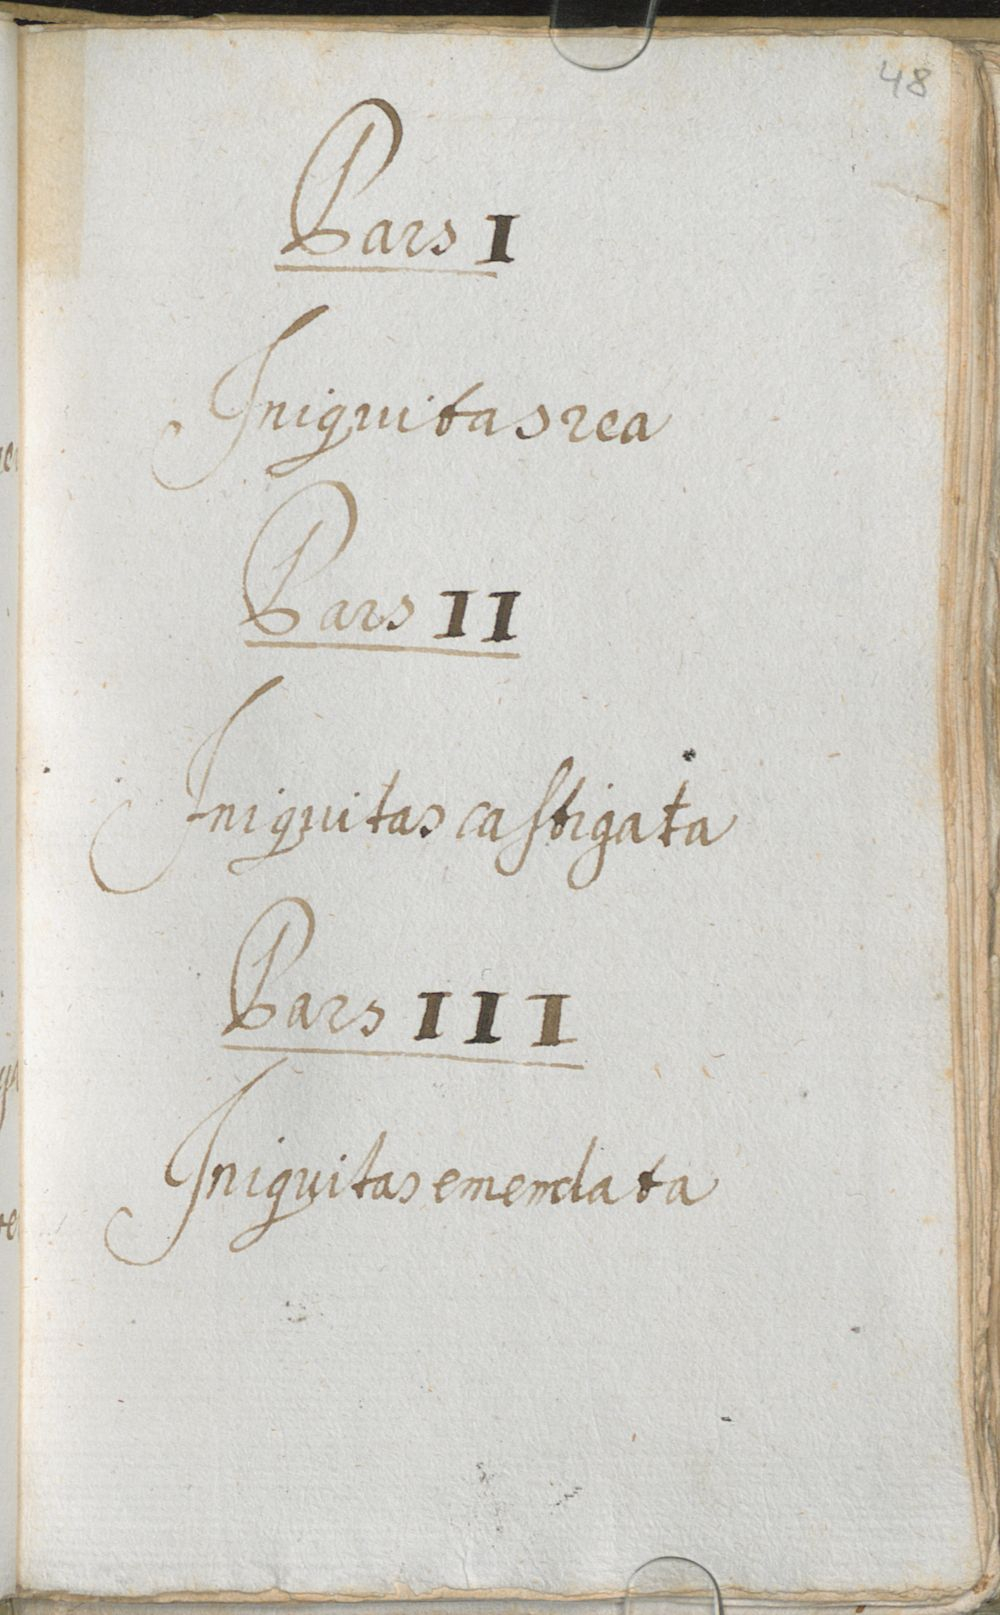 48
Pars I
Iniquitas rea
Pars II
Iniquitas castigata
Pars III
Iniquitas emendata